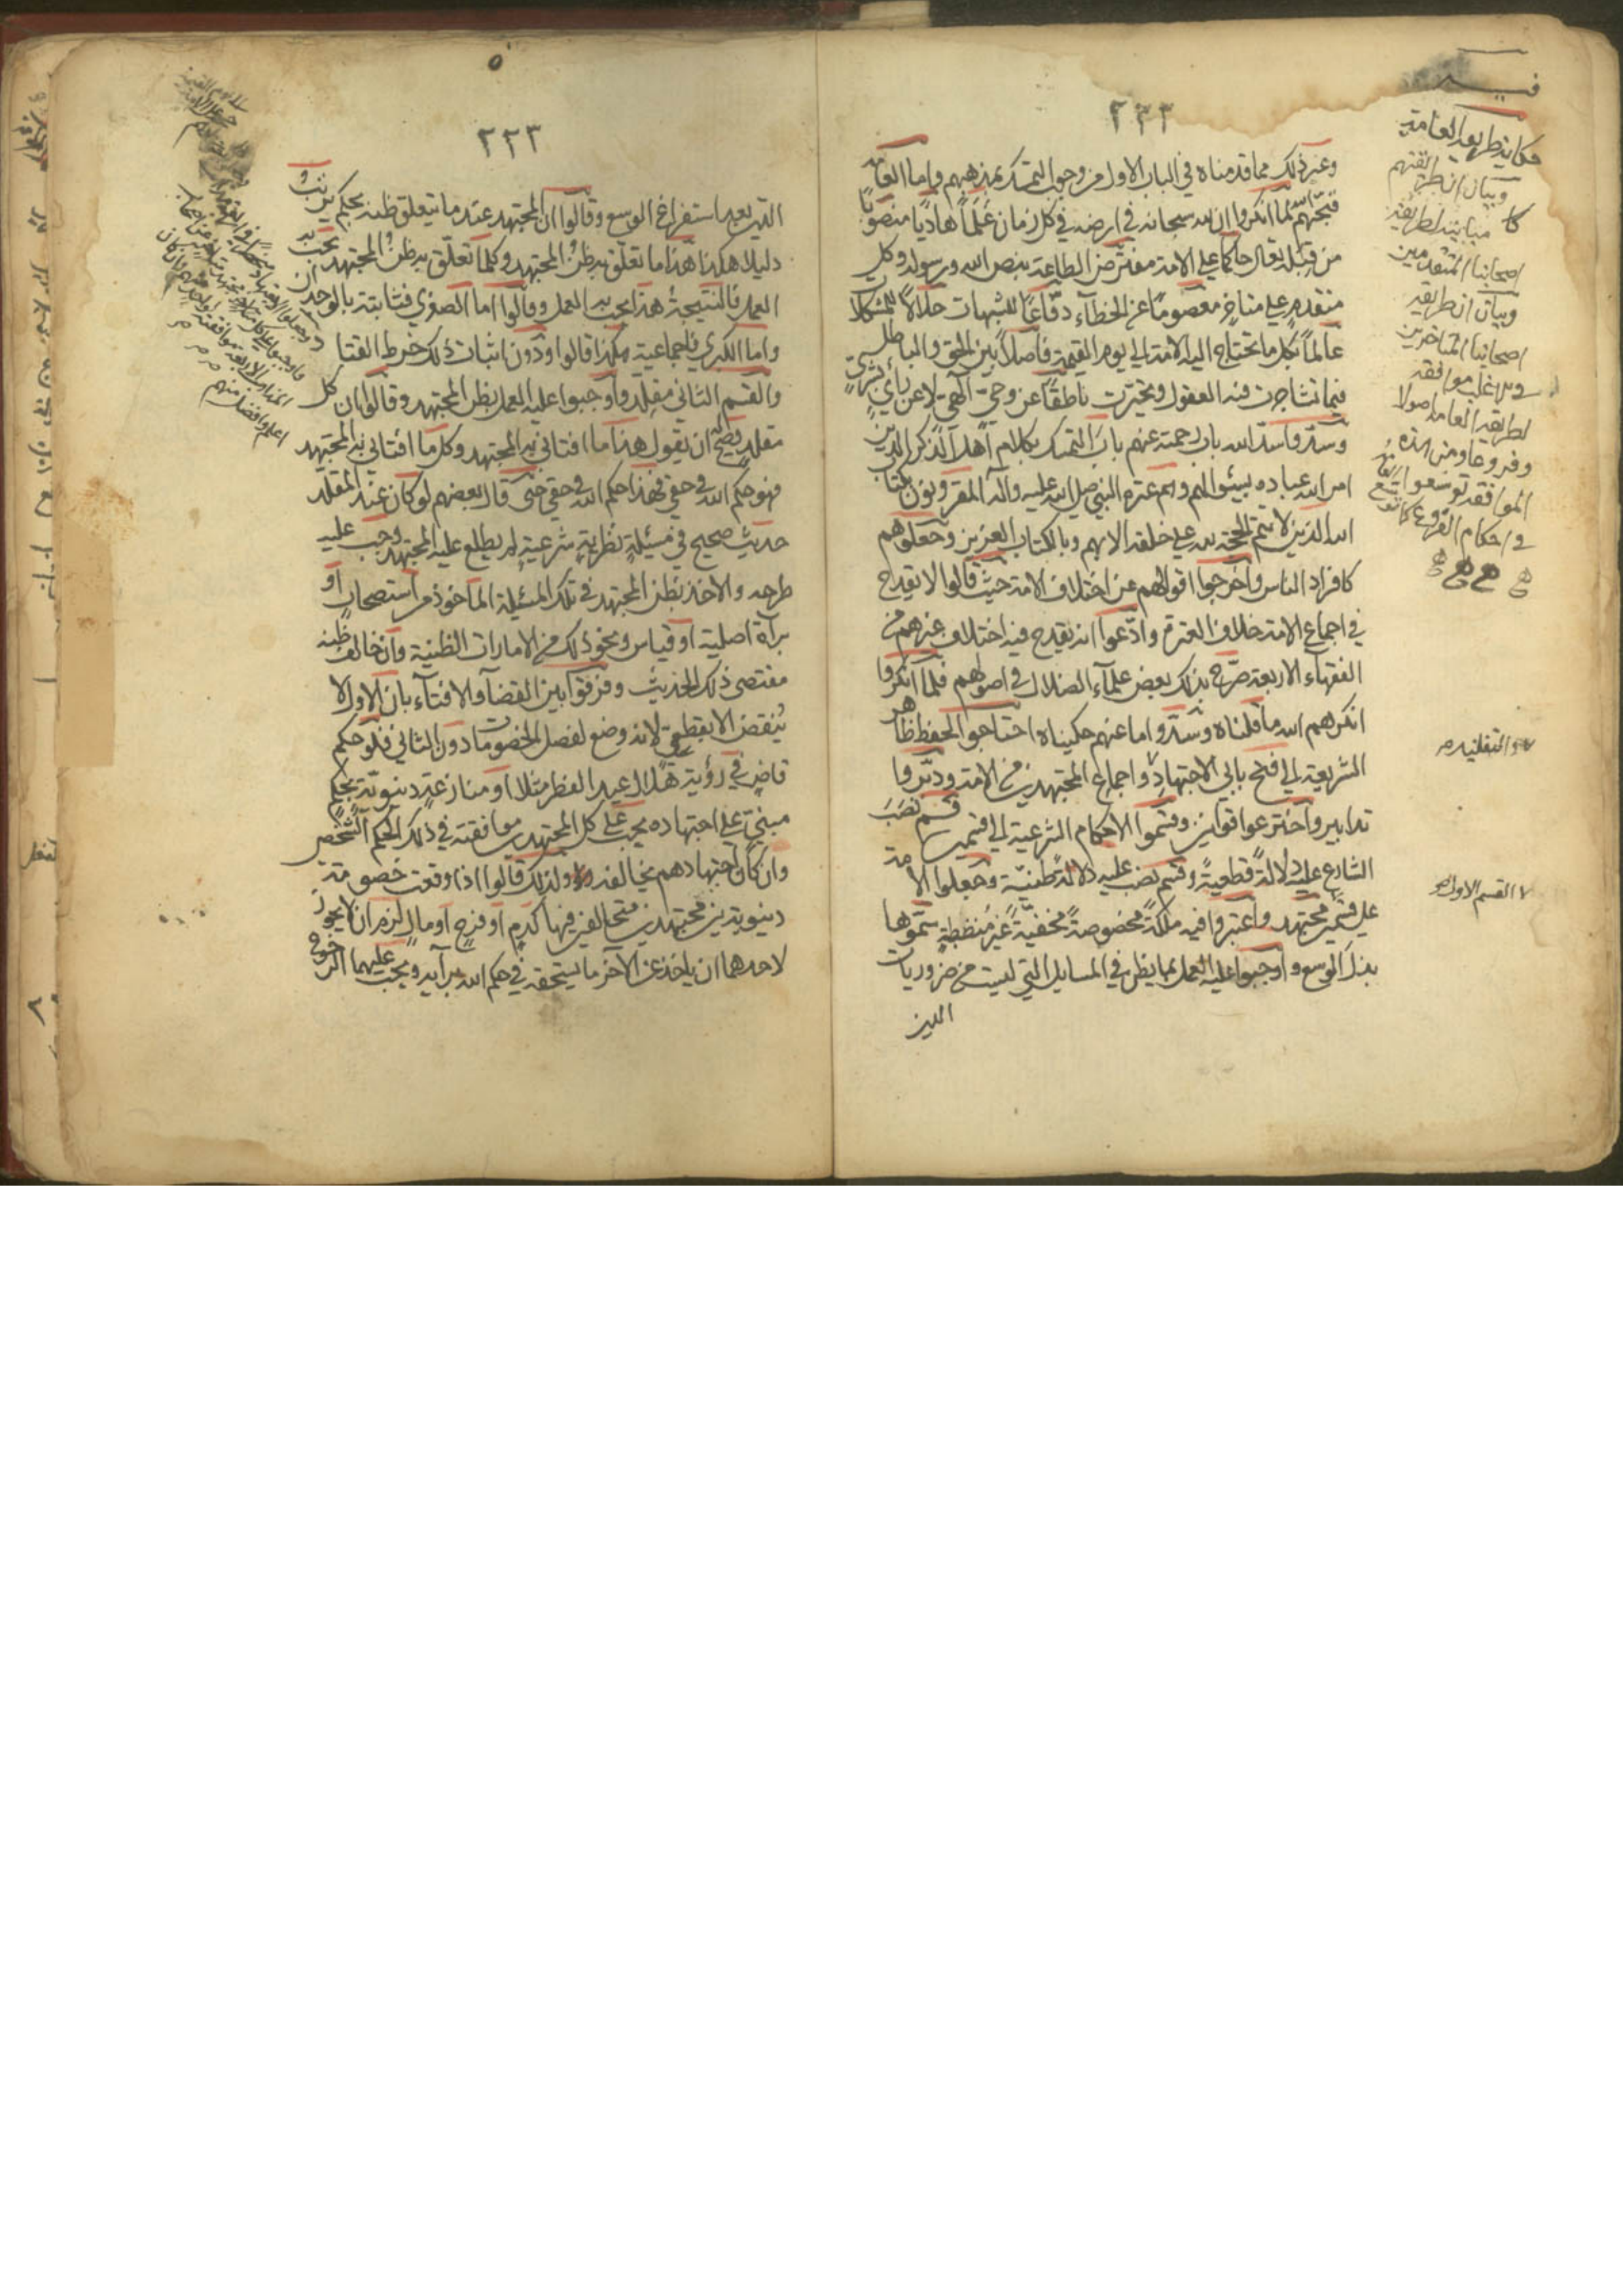 ٢٣٣
وغير ذلك مما قدمناه في الباب الاول من وجوب التمسك بمذهبهم واما العامة
فبحهم الله لما انكروا ان لله سبحانه في ارضه في كل زمان علما هاديا منصوبا
من قبله تعالى حاكما على الامة مفترض الطاعة بنص الله ورسوله وكل
متقدم على متاخر معصوما عن الخطاء دفاعا للشبهات حلالا للمشكلات
عالما بكل ما تحتاج اليه الامة الى يوم القيمة فاصلا بين الحق والباطل
فيما تشاجرت فيه العقول وتحيرت ناطقا عن وحي الهي لا عن رأي بشري
وسدوا سد الله باب رحمته عنهم باب التمسك بكلام اهل الذكر الذين
امر الله عباده بسئوالهم وهم عترة النبي صلى الله عليه وآله المقرونون بكتاب
الله الذين لا تتم الحجة لله على خلقه الا بهم وبالكتاب العزيز وجعلوهم
كافراد الناس واخرجوا اقوالهم عن اختلاف الامة حيث قالوا لا يقدح
في اجماع الامة خلاف العترة وادعوا انه يقدح فيه اختلاف غيرهم من
الفقهاء الاربعة صرح بذلك بعض علمآء الضلال في اصولهم فلما انكروا
انكرهم الله ما قلناه وسدوا ما عنهم حكيناه احتاجوا لحفظ ظاهر
الشريعة الى فتح بابي الاجتهاد واجماع المجتهدين من الامة ودبروا
تدابير واخترعوا قوانين وقسموا الاحكام الشرعية الى قسمين قسم نصب
الشارع عليه دلالة قطعية وقسم نصب عليه دلالة ظنية وجعلوا الامة
على قسمين مجتهد واعتبروا فيه ملكة مخصوصة مخفية غير منضبطة سموها
بذل الوسع واوجبوا عليه العمل بما يظن في المسايل التي ليست من ضروريات
الدين
حكاية طريقة العامة
وبيان ان طريقتهم
مباينة لطريقة
اصحابنا المتقدمين
وبيان ان طريقة
اصحابنا المتاخرين
موافقة
لطريقة العامة اصولا
وفروعا ومن هذه
الموافقة توسعوا
في احكام الفروع
والتقليد
القسم الاول
٢٢٣
الدين بعد استفراغ الوسع وقالوا ان المجتهد عند ما يتعلق ظنه بحكم يرتب
دليلا هكذا هذا ما تعلق به ظن المجتهد وكلما تعلق به ظن المجتهد يجب به
العمل فالنتيجة هذا يجب به العمل وقالوا اما الصغرى فثابتة بالوجدان
واما الكبرى فاجماعية هكذا قالوا ودون اثبات ذلك خرط القتاد
والقسم الثاني مقلد واوجبوا عليه العمل بظن المجتهد وقالوا ان كل
مقلد يصح ان يقول هذا ما افتاني به المجتهد وكل ما افتاني به المجتهد
فهو حكم الله في حقي فهذا حكم الله في حقي حتى قال بعضهم لو كان عند المقلد
حديث صحيح في مسئلة نظرية شرعية لم يطلع عليه المجتهد وجب عليه
طرحه والاخذ بظن المجتهد في تلك المسئلة الماخوذ من استصحاب او
براة اصلية او قياس ونحو ذلك من الامارات الظنية وان خالف ظنه
مقتضى ذلك الحديث وفرقوا بين القضآء والافتآء بان الاول لا
ينقض الا بقطعي لانه وضع لفصل الخصومات دون الثاني فلو حكم
قاض في رؤية هلال عيد الفطر مثلا او منازعة دنيوية بحكم
مبني على اجتهاده يجب على كل المجتهدين موافقته في ذلك الحكم الشخصي
وان كان اجتهادهم يخالفه ولذلك قالوا اذا وقعت خصومة
دنيوية بين مجتهدين متخالفين فيها كدم او فرج او مال لزم ان لا يجوز
لاحدهما ان ياخذ عن الآخر ما يستحقه في حكم الله برأيه ويجب عليهما الرجوع
اعلم وافضل منهم